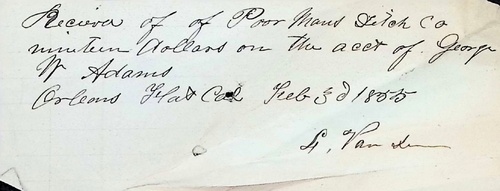 Recieved of of Poor Mans Ditch Co
nineteen Dollars on the acct of George
W Adams
Orleans Flat Cal Feb 3d 1855
L, Van